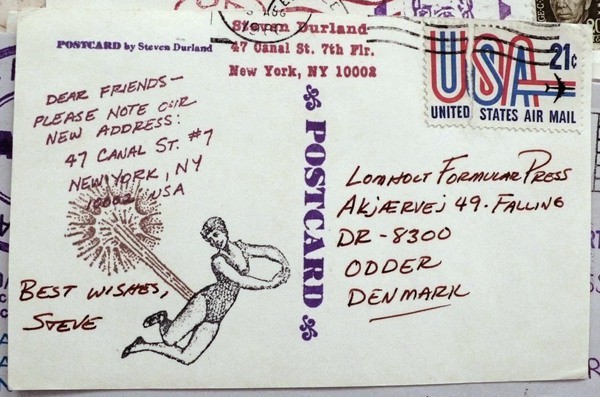 POSTCARD by Steven Durland
Steven Durland
47 Canal St. 7th Flr.
New York, NY 10002
USA 21c
UNITED STATES AIR MAIL
DEAR FRIENDS—
PLEASE NOTE OUR
NEW ADDRESS:
47 CANAL ST. #7
NEW YORK, NY
10002 USA
BEST WISHES,
STEVE
POSTCARD
LOMHOLT FORMULAR PRESS
AKJÆRVEJ 49. FALLING
DR-8300
ODDER
DENMARK